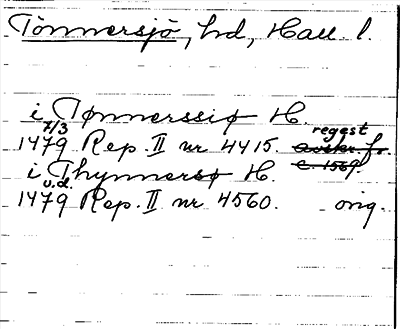 Tönnersjö, hd, Hall l.
i Tønnerssiø H.
7/3 regest
1479 Rep. II nr 4415. avskr. fr.
c. 1569.
i Thynnersø H.
u.d.
1479 Rep. II nr 4560. orig.